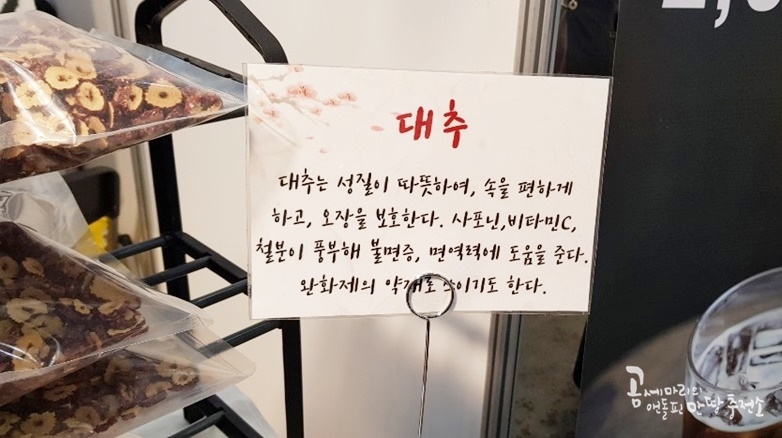 대추
대추는 성질이 따뜻하여, 속을 편하게
하고, 오장을 보호한다. 사포닌,비타민C,
철분이 풍부해 불면증, 면역력에 도움을 준다.
완화제의 약재로 쓰이기도 한다.
곰세마리의
앤돌핀 만땅 충전소